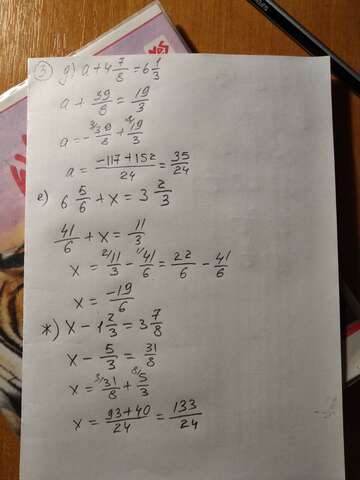 ③ д) a + 4 7/8 = 6 1/3
a + 39/8 = 19/3
a = - ³⁾39/8 + ⁸⁾19/3
a = (-117 + 152)/24 = 35/24
е) 6 5/6 + x = 3 2/3
41/6 + x = 11/3
x = ²⁾11/3 - ¹⁾41/6 = 22/6 - 41/6
x = -19/6
ж) x - 1 2/3 = 3 7/8
x - 5/3 = 31/8
x = ³⁾31/8 + ⁸⁾5/3
x = (93 + 40)/24 = 133/24